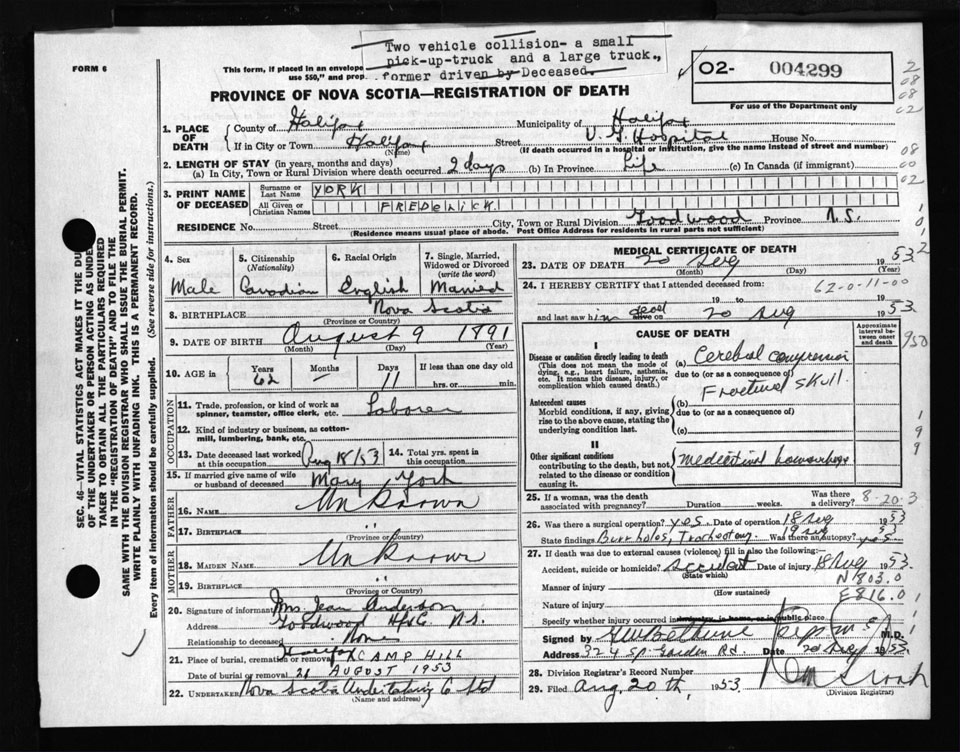 Two vehicle collision- a small
pick-up-truck and a large truck.,
former driven by Deceased.
FORM 6
This form, if placed in an envelope
use $50," and prep
02- 004299
For use of the Department only
PROVINCE OF NOVA SCOTIA—REGISTRATION OF DEATH
1. PLACE OF DEATH
County of Halifax Municipality of Halifax
If in City or Town Halifax Street V. G. Hospital House No.
(Name) (If death occurred in a hospital or institution, give the name instead of street and number)
2. LENGTH OF STAY (in years, months and days)
(a) In City, Town or Rural Division where death occurred 2 days (b) In Province Life (c) In Canada (if immigrant)
3. PRINT NAME OF DECEASED
Surname or Last Name YORK
All Given or Christian Names FREDERICK
RESIDENCE No. Street City, Town or Rural Division Goodwood Province N.S.
(Residence means usual place of abode. Post Office Address for residents in rural parts not sufficient)
SEC. 46—VITAL STATISTICS ACT MAKES IT THE DU
OF THE UNDERTAKER OR PERSON ACTING AS UNDE
TAKER TO OBTAIN ALL THE PARTICULARS REQUIRED
IN THE "REGISTRATION OF DEATH" AND TO FILE THE
SAME WITH THE DIVISION REGISTRAR WHO SHALL ISSUE THE BURIAL PERMIT.
WRITE PLAINLY WITH UNFADING INK. THIS IS A PERMANENT RECORD.
Every item of information should be carefully supplied. (See reverse side for instructions.)
4. Sex Male
5. Citizenship (Nationality) Canadian
6. Racial Origin English
7. Single, Married, Widowed or Divorced (write the word) Married
8. BIRTHPLACE Nova Scotia
(Province or Country)
9. DATE OF BIRTH August 9 1891
(Month) (Day) (Year)
10. AGE in Years 62 Months — Days 11 If less than one day old
hrs. or min.
OCCUPATION
11. Trade, profession, or kind of work as spinner, teamster, office clerk, etc. Laborer
12. Kind of industry or business, as cotton-mill, lumbering, bank, etc.
13. Date deceased last worked at this occupation Aug 18/53
14. Total yrs. spent in this occupation
15. If married give name of wife or husband of deceased Mary York
FATHER
16. NAME Unknown
17. BIRTHPLACE "
(Province or Country)
MOTHER
18. MAIDEN NAME Unknown
19. BIRTHPLACE "
(Province or Country)
20. Signature of informant Mrs. Jean Anderson
Address Goodwood Hfx Co. N.S.
Relationship to deceased None
21. Place of burial, cremation or removal Halifax CAMP HILL
Date of burial or removal 21 AUGUST 1953
22. Undertaker Nova Scotia Undertaking Co Ltd
(Name and address)
MEDICAL CERTIFICATE OF DEATH
23. DATE OF DEATH 20 Aug 1953
(Month) (Day) (Year)
24. I HEREBY CERTIFY that I attended deceased from 62-0-11-00
19 to 19
and last saw him dead alive on 20 Aug 1953
CAUSE OF DEATH
Approximate interval between onset and death
I
Disease or condition directly leading to death
(This does not mean the mode of dying, e.g., heart failure, asthenia, etc. It means the disease, injury, or complication which caused death.)
(a) Cerebral Compression
due to (or as a consequence of)
Fractured skull.
Antecedent causes
Morbid conditions, if any, giving rise to the above cause, stating the underlying condition last.
(b)
due to (or as a consequence of)
(c)
II
Other significant conditions
contributing to the death, but not related to the disease or condition causing it.
Mediastinal hemorrhage
25. If a woman, was the death associated with pregnancy? Duration weeks. Was there a delivery?
8-20-3
26. Was there a surgical operation? yes. Date of operation 18 Aug 1953
19 Aug 53
State findings Burr holes, Tracheotomy. Was there an autopsy? yes.
27. If death was due to external causes (violence) fill in also the following:—
Accident, suicide or homicide? accident Date of injury 18 Aug 1953.
(State which)
Manner of injury N 803.0
(How sustained)
Nature of injury E816.0
If injury occurred in industry, in home, or in public place
Signed by M.D.
Address 324 Sp. Garden Rd. Date 20 Aug 1953.
28. Division Registrar's Record Number
29. Filed Aug. 20th, 1953
(Division Registrar)